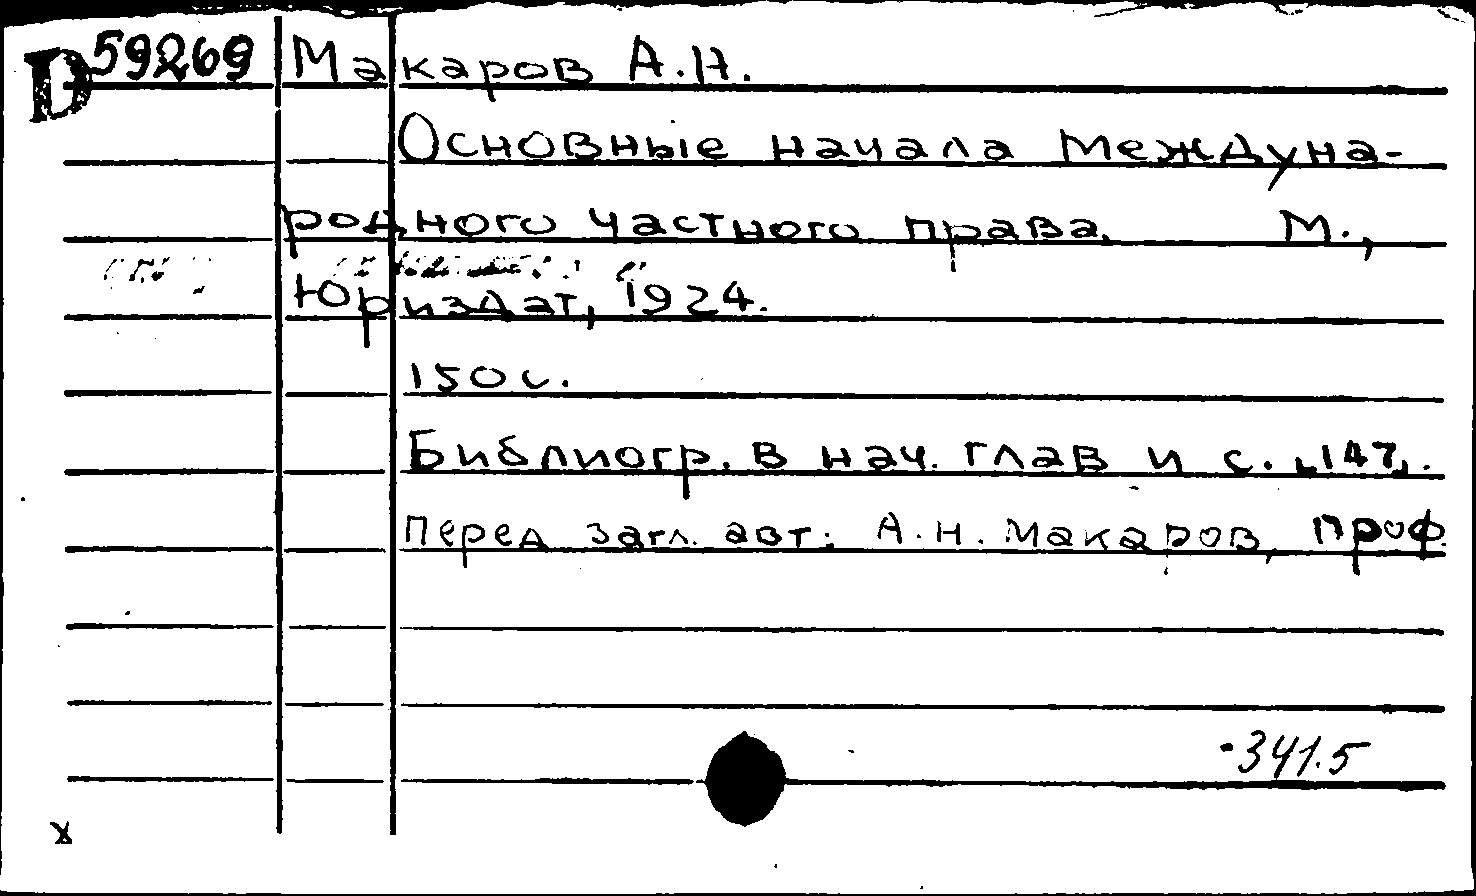 D 59269 Макаров А.Н.
Основные начала междуна-
родного частного права. М.,
Юриздат, 1924.
150 с.
Библиогр. в нач. глав и с. [147].
Перед загл. авт.: А.Н. Макаров, проф.
-341.5
x